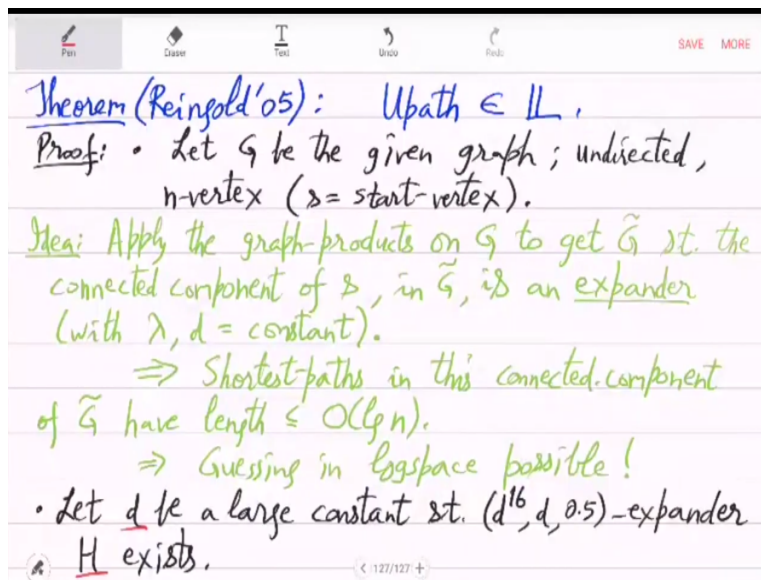 Pen Eraser Text Undo Redo SAVE MORE
Theorem (Reingold'05): Upath ∈ 𝕃.
Proof: • Let G be the given graph; undirected,
n-vertex (s = start-vertex).
Idea: Apply the graph-products on G to get G̃ st. the
connected component of s, in G̃, is an expander
(with λ, d = constant).
⇒ Shortest-paths in this connected-component
of G̃ have length ≤ O(lg n).
⇒ Guessing in logspace possible!
• Let d be a large constant st. (d¹⁶, d, 0.5)-expander
H exists.
< 127/127 +